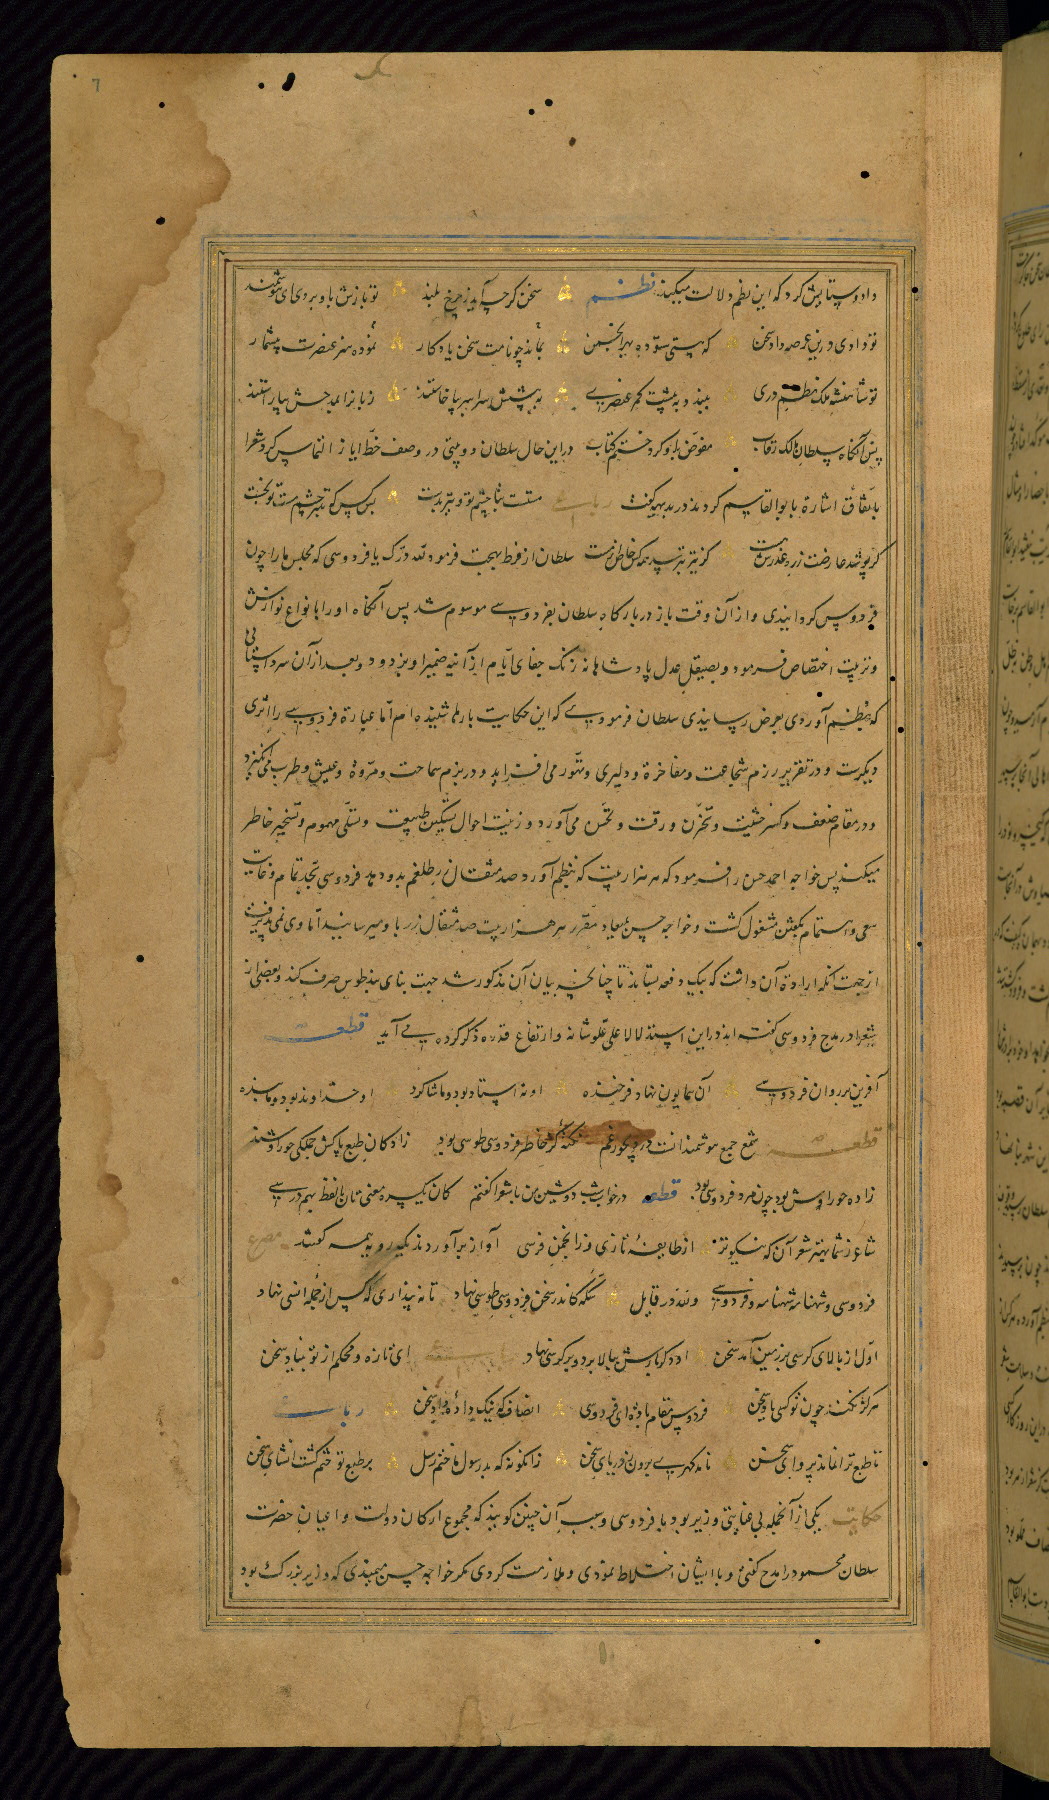 داد و ستایش کرد که این نظم دلالت میکند نظم سخن گر چه آید ز چرخ بلند تو بازش باو بردی ای هوشمند
تو دادی درین عرصه داد سخن که هستی ستوده بهر انجمن بماند چو نامت سخن یادکار نموده هنر عنصرت بیشمار
تو شاهنشه ملک نظم دری ببندد به پیشت کمر عنصری به پیشش سراسر بپا خاستند زبانرا بمدحش بیاراستند
پس آنگاه سلطان مالک رقاب مفوض باو کرد ختم کتاب در این حال سلطان دو بیتی در وصف خط ایاز التماس کرد شعرا
باتفاق اشارة بابوالقاسم کردند در بدیهه گفت رباعی مستست بتا چشم تو و تیر بدست بس کس که ز تیر چشم مستت بخست
گر پوشد عارضت زره عذرش هست کز تیر بترسد همه کس خاصه ز مست سلطان از فرط بهجت فرمود لله درک یا فردوسی که مجلس ما را چون
فردوس گردانیدی و از آن وقت باز در بارگاه سلطان بفردوسی موسوم شد پس آنگاه او را بانواع نوازش
و تربیت اختصاص فرمود و بصیقل عدل پادشاهانه زنگ جفای ایام از آئینه ضمیر او بزدود و بعد از آن هر داستانی
که بنظم آوردی بعرض رسانیدی سلطان فرمودی که این حکایت بارها شنیده ام اما عبارة فردوسی را اثری
دیگرست و در تقریر رزم شجاعت و مفاخرة و دلیری و تهور می افزاید و در بزم سماحت و مروة و عیش و طرب می انگیزد
و در مقام ضعف و کسر خشیت و تحزن و رقت و تحنن می آورد و زینت احوال تسکین طبیعت و تسلی هموم و تسخیر خاطر
میکند پس خواجه احمد حسن را فرمود که هر هزار بیت که بنظم آورد صد مثقال زر طلغم بدو دهد فردوسی بجد تمام و غایت
سعی و اهتمام بگفتن مشغول گشت و خواجه حسن بمیعاد مقرر هر هزار بیت صد مثقال زر باو میرسانید اما وی نمی پذیرفت
از جهت آنکه ارادة آن داشت که بیک دفعه بستاند تا چنانچه بیان آن مذکور شد جهت بنای بند طوس صرف کند و بعضی از
شعرا در مدح فردوسی گفته اند در این اسند لالا علی علو شانه و ارتفاع قدره ذکر کرده می آید قطعه
آفرین بر روان فردوسی آن همایون نهاد فرخنده او نه استاد بود و ما شاگرد او خداوند بود و ما بنده
قطعه شمع جمع هوشمندانست در دیجور غم نکته کز خاطر فردوسی طوسی بود زادگان طبع پاکش جملگی حوراوشند
زاده حوراوش بود چون مرد فردوسی بود قطعه در خواب شب دوشین من با شعرا گفتم کای یکسره معنی تان با لفظ بهم درسی
شاعر ز شما بهتر شعر آن که نیکوتر از طایفهٔ تازی وز انجمن فرسی آواز برآوردند یکرویه همه گفتند مصرع
فردوسی و شهنامه شهنامه و فردوسی ولله در قایل سکه کاندر سخن فردوسی طوسی نهاد تا نه پنداری که کس از جمله انسی نهاد
اول از بالای کرسی بر زمین آمد سخن او دگر بارش ببالا برد و بر کرسی نهاد ای تازه و محکم از تو بنیاد سخن
هرگز نکند چون تو کسی یاد سخن فردوس مقام بادت ای فردوسی انصاف که نیک دادهٔ داد سخن رباعی
تا طبع ترا نماند پروای سخن نامد گهری برون ز دریای سخن زانگونه که بد رسول ما ختم رسل بر طبع تو ختم گشت انشای سخن
حکایت یکی از آنجمله بی عنایتی وزیر بود با فردوسی و سبب آن چنین گویند که مجموع ارکان دولت و اعیان حضرت
سلطان محمود را مدح گفتی و با ایشان اختلاط نمودی و ملازمت کردی مگر خواجه حسن میمندی که وزیر بزرگ بود